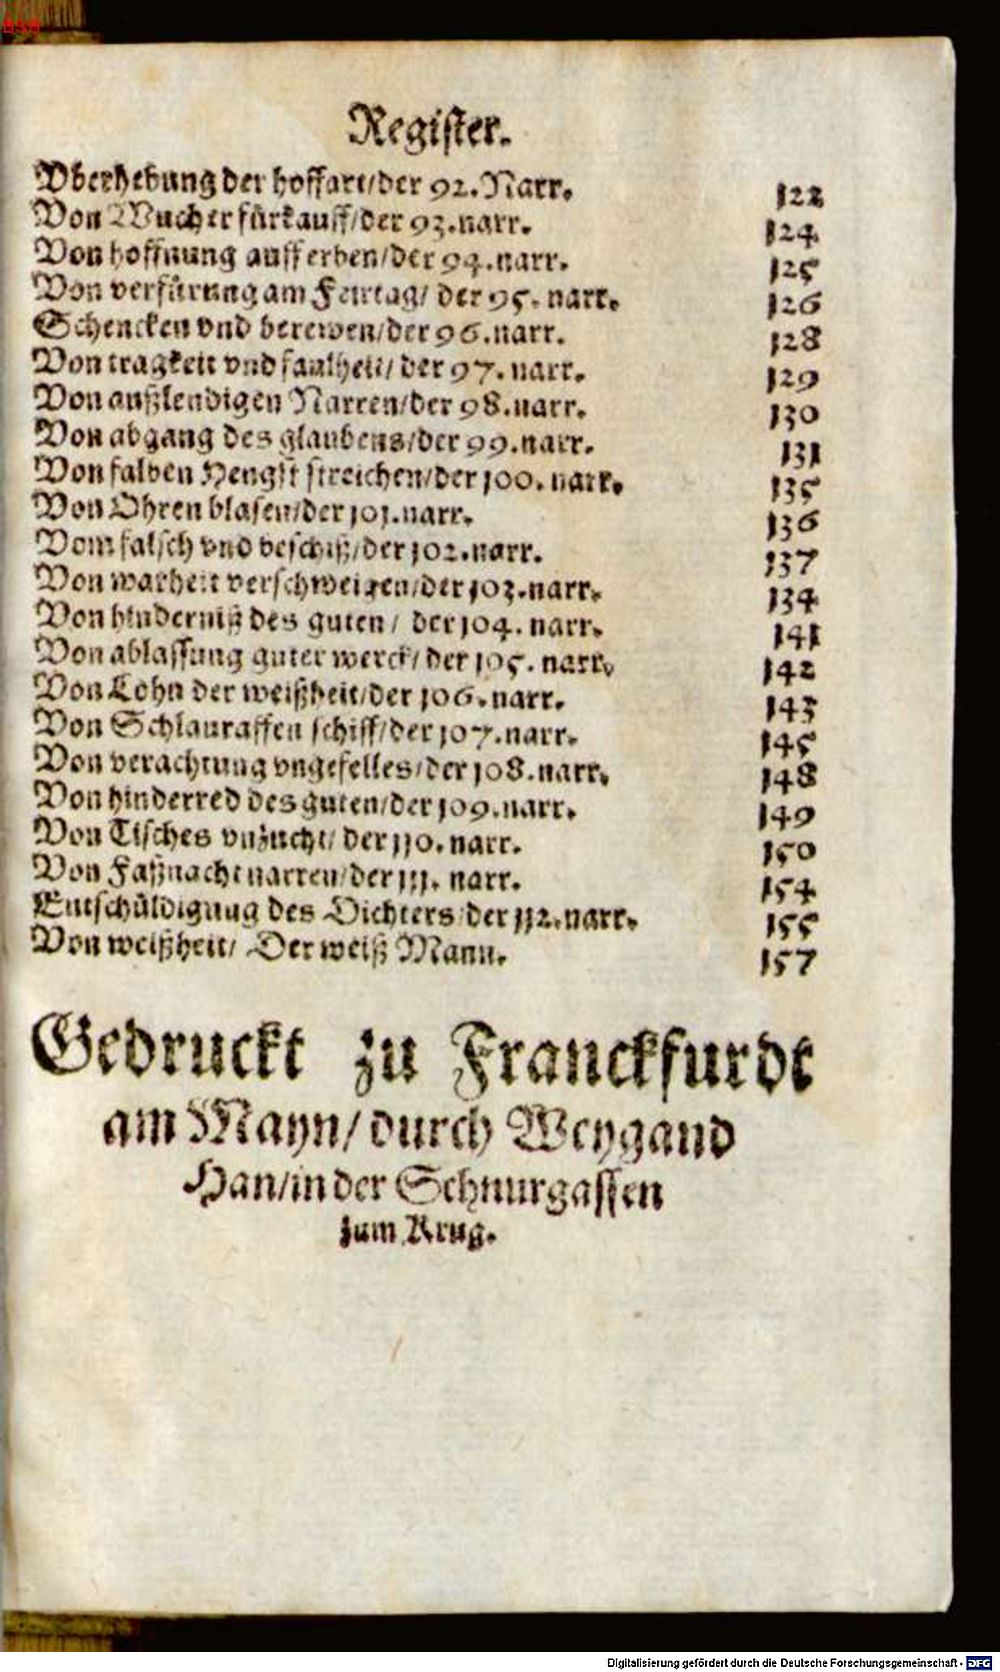 BSB
Register.
Vberhebung der hoffart/der 92. Narr. 122
Von Wucher fürkauff/der 93. narr. 124
Von hoffnung auff erben/der 94. narr. 125
Von verfürung am Feirtag/ der 95. narr. 126
Schencken vnd berewen/der 96. narr. 128
Von tragkeit vnd faulheit/ der 97. narr. 129
Von außlendigen Narren/der 98. narr. 130
Von abgang des glaubens/der 99. narr. 131
Von falben Hengst streichen/der 100. narr. 135
Von Ohren blasen/der 101. narr. 136
Vom falsch vnd beschiß/der 102. narr. 137
Von warheit verschweigen/der 103. narr. 134
Von hinderniß des guten/ der 104. narr. 141
Von ablassung guter werck/ der 105. narr. 142
Von Lohn der weißheit/der 106. narr. 143
Von Schlauraffen schiff/der 107. narr. 145
Von verachtung vngefelles/der 108. narr. 148
Von hinderred des guten/der 109. narr. 149
Von Tisches vnzucht/ der 110. narr. 150
Von Faßnacht narren/der 111. narr. 154
Entschüldigung des Dichters/der 112. narr. 155
Von weißheit/ Der weiß Mann. 157
Gedruckt zu Franckfurdt
am Mayn/ durch Weygand
Han/in der Schnurgassen
zum Krug.
Digitalisierung gefördert durch die Deutsche Forschungsgemeinschaft - DFG